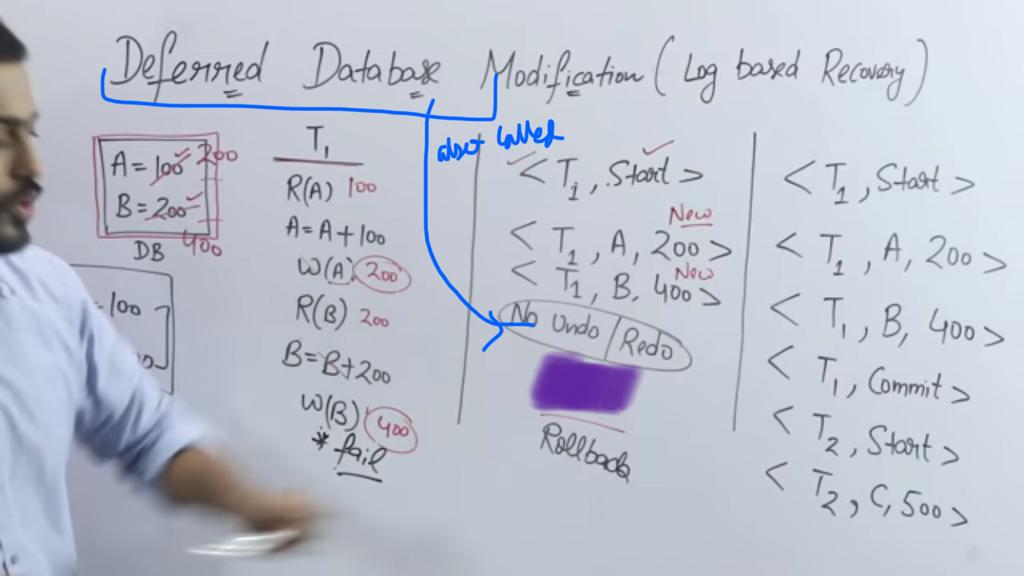 Deferred Database Modification (Log based Recovery)
A = 100 200
B = 200
400
DB
100
T1
R(A) 100
A = A + 100
W(A) 200
R(B) 200
B = B + 200
W(B) 400
* fail
also called
< T1, Start >
New
< T1, A, 200 >
New
< T1, B, 400 >
No Undo / Redo
Rollback
< T1, Start >
< T1, A, 200 >
< T1, B, 400 >
< T1, Commit >
< T2, Start >
< T2, C, 500 >